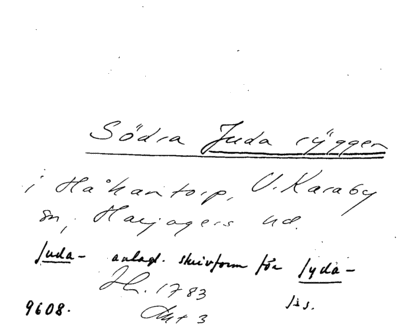 Södra Juda ryggen
i Håkantorp, V. Karaby
sn, Harjagers hd.
Juda- antagl. skrivform för Jyda-
Jh. 1783
Akt 3 JSS.
9608.